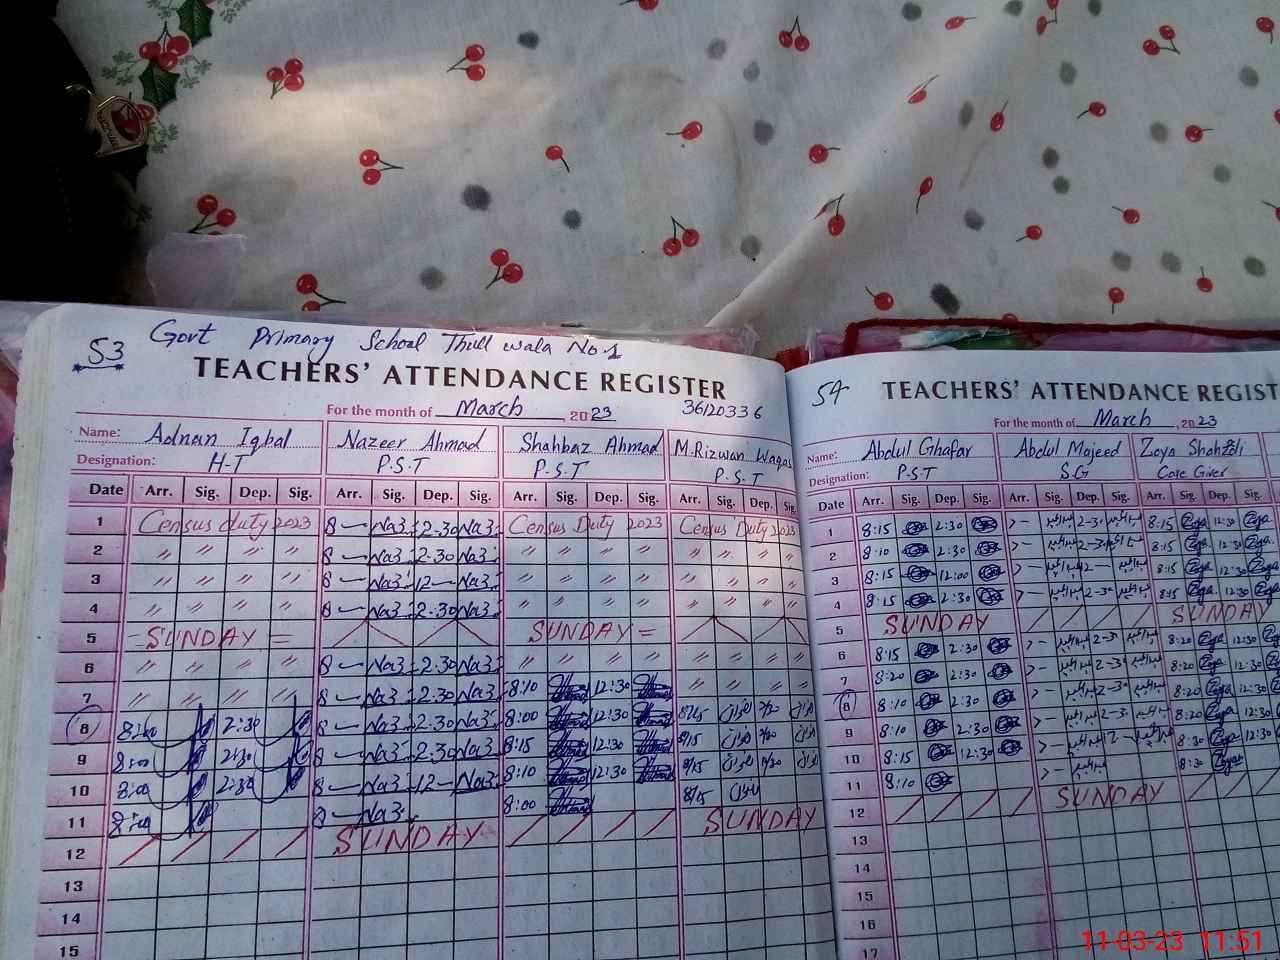 53
Govt Primary School Thull wala No.1
TEACHERS' ATTENDANCE REGISTER
For the month of March, 2023 36120336
Name: Adnan Iqbal Nazeer Ahmad Shahbaz Ahmad M.Rizwan Waqas
Designation: H-T P.S.T P.S.T P.S.T
Date Arr. Sig. Dep. Sig. Arr. Sig. Dep. Sig. Arr. Sig. Dep. Sig. Arr. Sig. Dep. Sig.
1 Census duty 2023 8 2.30 Census Duty 2023 Census Duty 2023
2 〃 〃 〃 〃 8 2.30 〃 〃 〃 〃 〃 〃 〃 〃
3 〃 〃 〃 〃 8 12 〃 〃 〃 〃 〃 〃 〃 〃
4 〃 〃 〃 〃 8 2.30 〃 〃 〃 〃 〃 〃 〃 〃
5 = SUNDAY = SUNDAY =
6 〃 〃 〃 〃 8 2.30 〃 〃 〃 〃 〃 〃 〃 〃
7 〃 〃 〃 〃 8 2.30 8:10 12:30 〃 〃 〃 〃
8 8:00 2:30 8 2.30 8:00 12:30 8/15
9 8:00 2:30 8 2.30 8:15 12:30 8/15
10 8:00 2:30 8 12 8:10 12:30 8/15
11 8:00 8 8:00 8/15
12 SUNDAY SUNDAY
13
14
15
54
TEACHERS' ATTENDANCE REGIST
For the month of March, 2023
Name: Abdul Ghafar Abdul Majeed Zoya Shahzadi
Designation: P-S-T S.G Care Giver
Date Arr. Sig. Dep. Sig. Arr. Sig. Dep. Sig. Arr. Sig. Dep. Sig.
1 8:15 2:30 2-30 8:15 Zoya 12:30 Zoya
2 8:10 2:30 8:15 Zoya 12:30 Zoya
3 8:15 12:00 8:15 Zoya 12:30 Zoya
4 8:15 2:30 2-30 8:15 Zoya 12:30 Zoya
5 SUNDAY SUNDAY
6 8:15 2:30 2-30 8:20 Zoya 12:30 Zoya
7 8:20 2:30 2-30 8:20 Zoya 12:30
8 8:10 2:30 2-30 8:20 Zoya 12:30
9 8:10 2:30 2-30 8:20 Zoya 12:30
10 8:15 12:30 8:30 Zoya 12:30
11 8:10 8:30 Zoya
12 SUNDAY
13
14
15
16
17
11-03-23 11:51